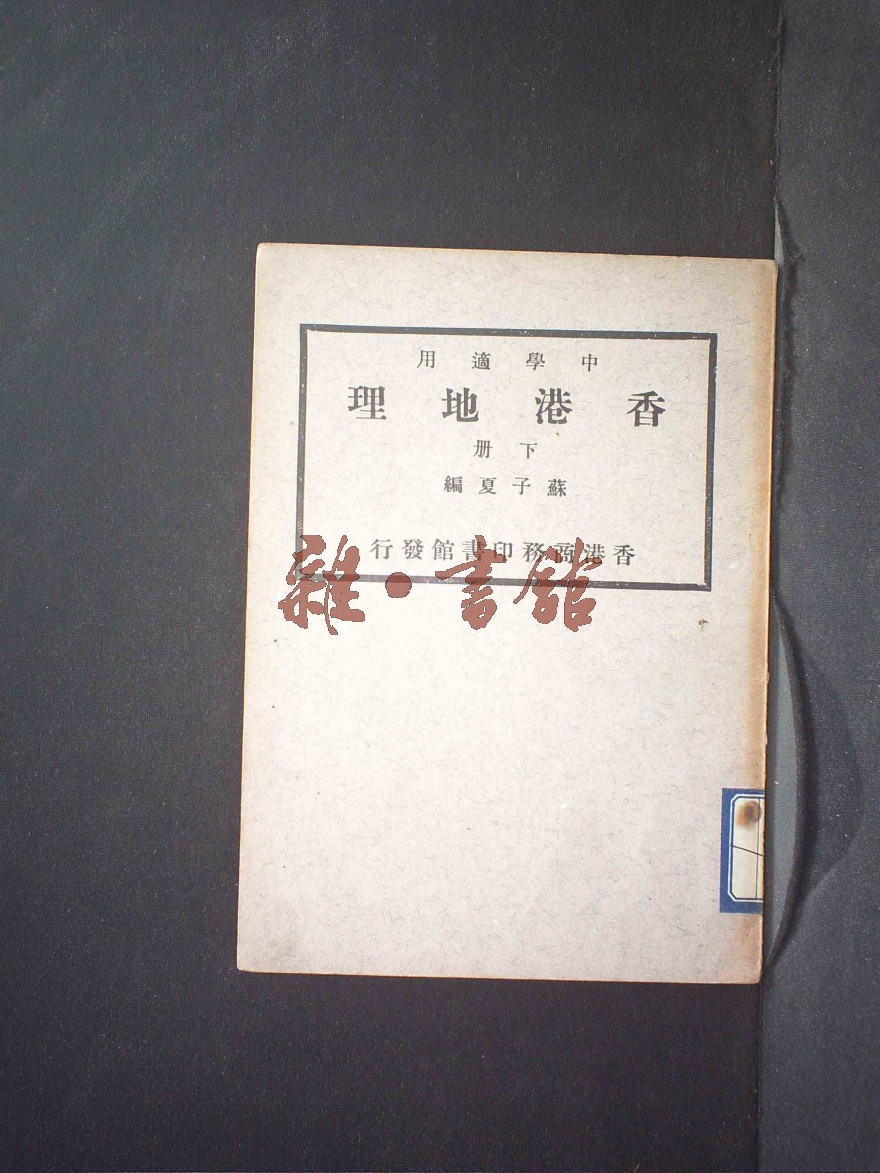 中學適用
香港地理
下册
蘇子夏編
香港商務印書館發行
雜·書館